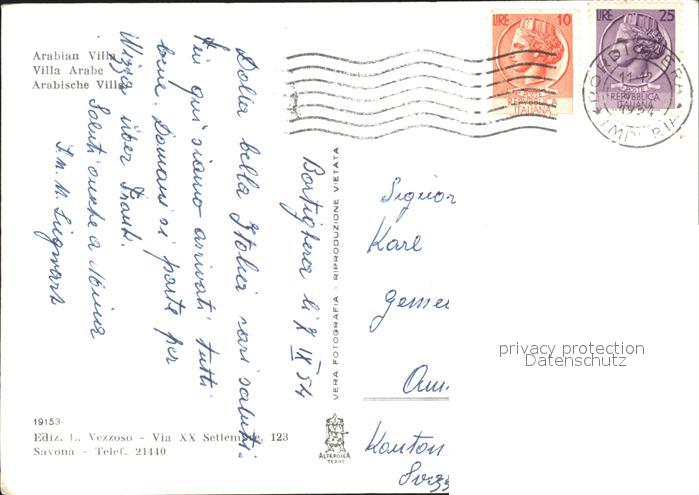 Arabian Villa
Villa Arabe
Arabische Villa
LIRE 10
POSTE
REPVBBLICA
ITALIANA
LIRE 25
POSTE
REPVBBLICA
ITALIANA
BORDIGHERA
11-12
1954
IMPERIA
Bordighera li 7 IX 54
Dalla bella Italia cari saluti.
Fin qui siamo arrivati tutti
bene. Domani si parte per
Nizza über Frank.
Saluti anche a Mina
VERA FOTOGRAFIA - RIPRODUZIONE VIETATA
Signor
Karl
Gemei
Kanton
privacy protection
Datenschutz
19153
Ediz. L. Vezzoso - Via XX Settembre, 123
Savona - Telef. 21440
ALTEROCCA
TERNI